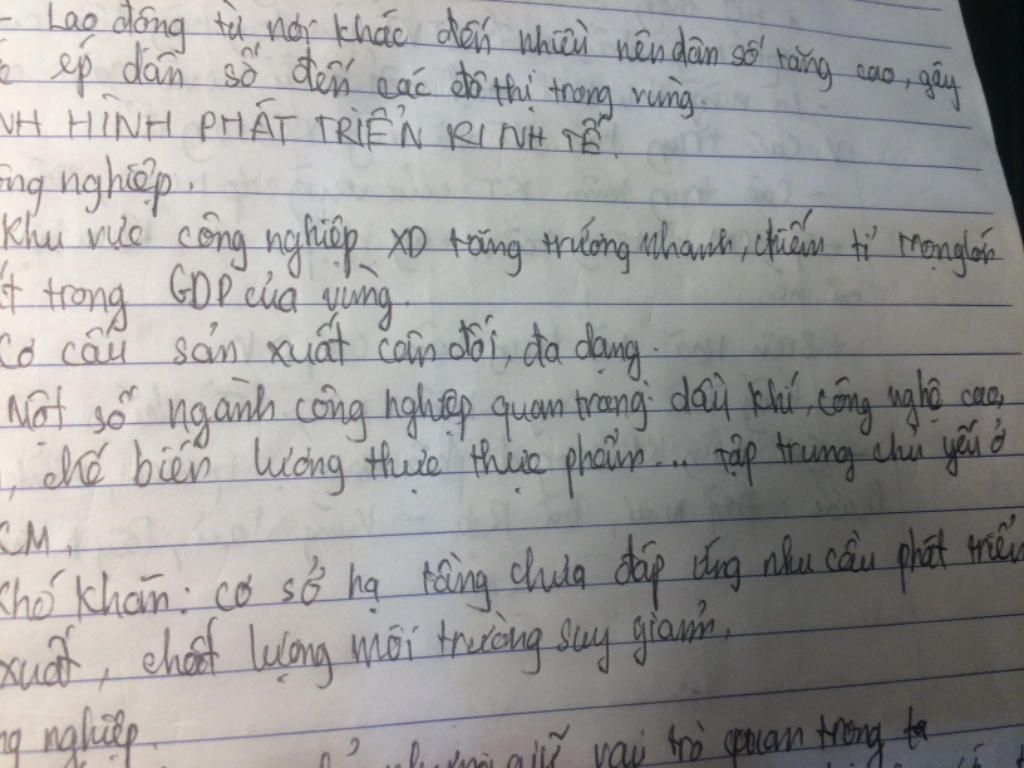 - Lao động từ nơi khác đến nhiều nên dân số tăng cao, gây
ép dân số đến các đô thị trong vùng.
NH HÌNH PHÁT TRIỂN KINH TẾ.
ông nghiệp.
Khu vực công nghiệp XD tăng trưởng nhanh, chiếm tỉ trọng lớn
t trong GDP của vùng.
Cơ cấu sản xuất cân đối, đa dạng.
Một số ngành công nghiệp quan trọng: dầu khí, công nghệ cao,
, chế biến lương thực thực phẩm... tập trung chủ yếu ở
CM.
Khó khăn: cơ sở hạ tầng chưa đáp ứng nhu cầu phát triển
xuất, chất lượng môi trường suy giảm.
ng nghiệp.
giữ vai trò quan trọng